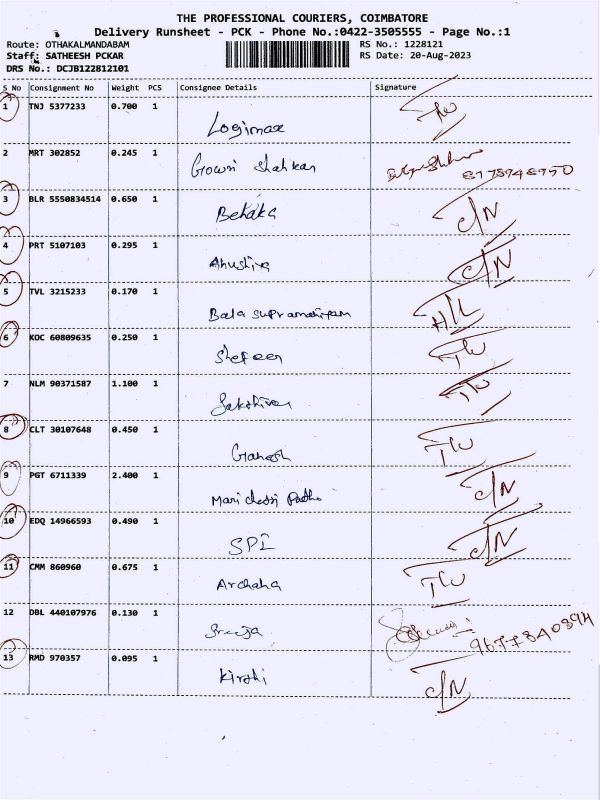 THE PROFESSIONAL COURIERS, COIMBATORE
Delivery Runsheet - PCK - Phone No.:0422-3505555 - Page No.:1
Route: OTHAKALMANDABAM RS No.: 1228121
Staff: SATHEESH PCKAR RS Date: 20-Aug-2023
DRS No.: DCJB122812101
S No Consignment No Weight PCS Consignee Details Signature
1 TNJ 5377233 0.700 1 Logimax
2 MRT 302852 0.245 1 Gowri Shankar
3 BLR 5550834514 0.650 1
4 PRT 5107103 0.295 1 C/N
5 TVL 3215233 0.170 1 Bala H/L
6 KOC 60809635 0.250 1 Shefeen
7 NLM 90371587 1.100 1
8 CLT 30107648 0.450 1 Ganesh
9 PGT 6711339 2.400 1 C/N
10 EDQ 14966593 0.490 1 SPI C/N
11 CMM 860960 0.675 1 Archana
12 DBL 440107976 0.130 1 Sreeja 9677840894
13 RMD 970357 0.095 1 C/N